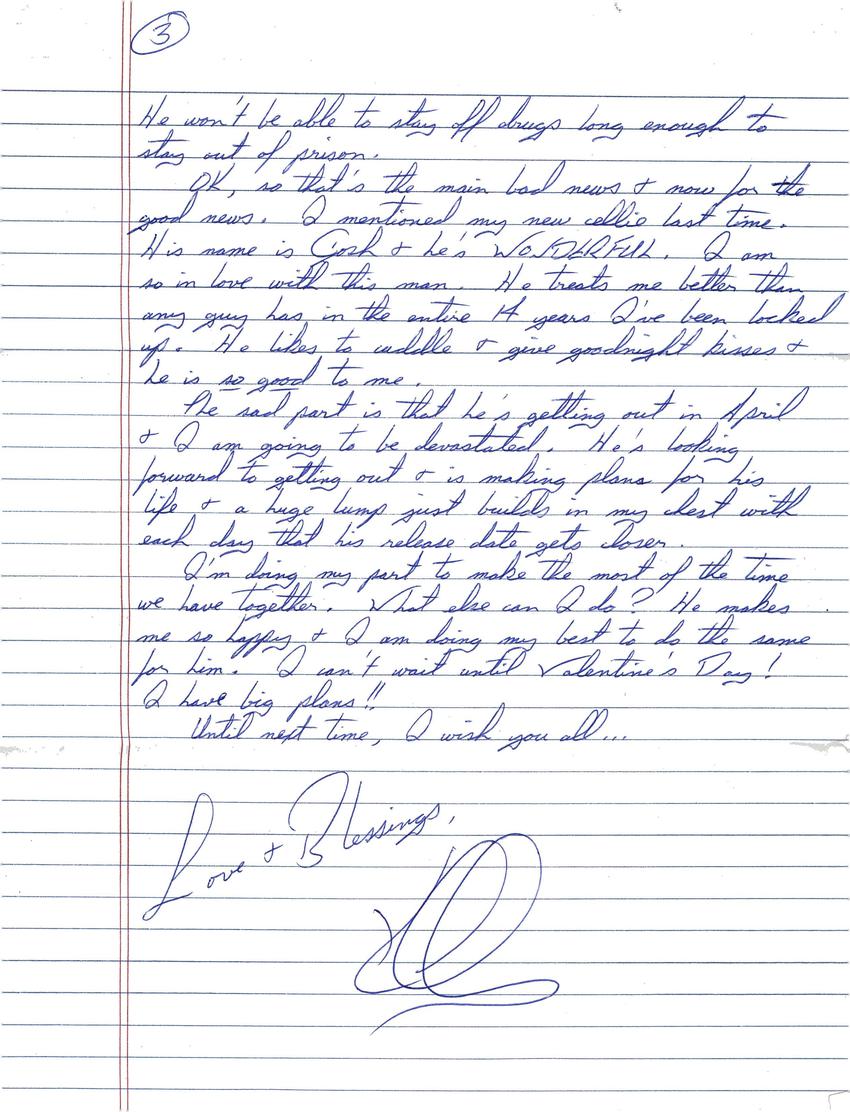 3
He won't be able to stay off drugs long enough to
stay out of prison.
OK, so that's the main bad news & now for the
good news. I mentioned my new cellie last time.
His name is Cosh & he's WONDERFUL. I am
so in love with this man. He treats me better than
any guy has in the entire 14 years I've been locked
up. He likes to cuddle & give goodnight kisses &
he is so good to me.
The sad part is that he's getting out in April
& I am going to be devastated. He's looking
forward to getting out & is making plans for his
life & a huge lump just builds in my chest with
each day that his release date gets closer.
I'm doing my part to make the most of the time
we have together. What else can I do? He makes
me so happy & I am doing my best to do the same
for him. I can't wait until Valentine's Day!
I have big plans!!
Until next time, I wish you all...
Love & Blessings,